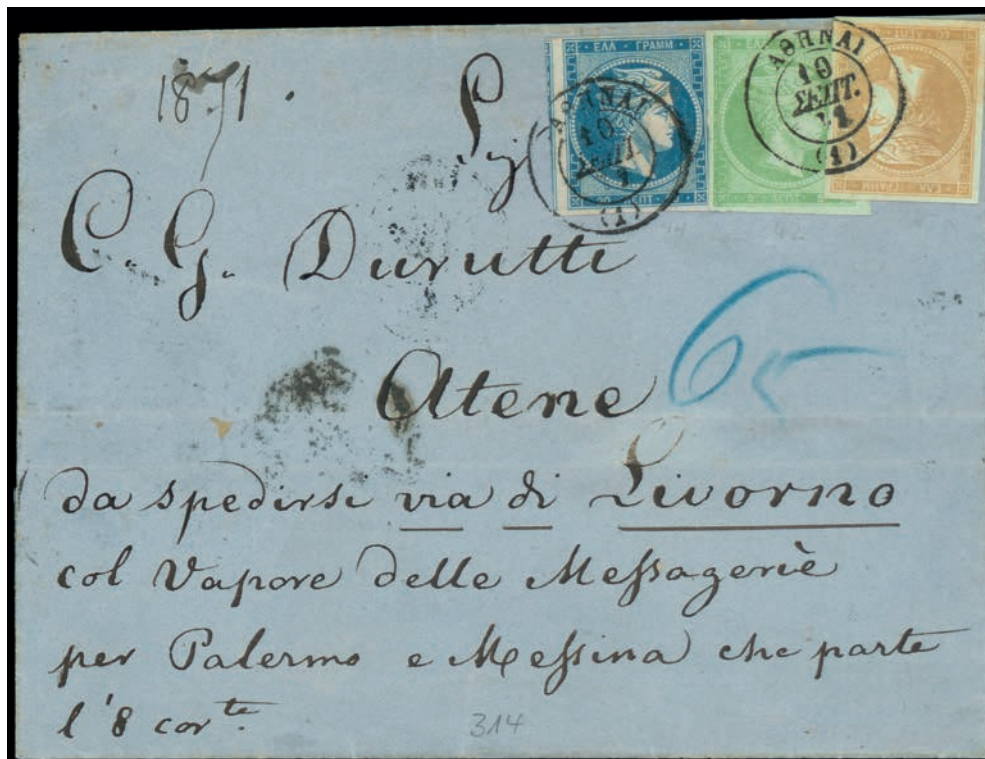 1871.
ΕΛΛ · ΓΡΑΜΜ
ΑΘΗΝΑΙ
10
ΣΕΠΤ.
(1)
ΛΕΠΤ
ΑΘΗΝΑΙ
10
ΣΕΠΤ.
(1)
ΛΕΠΤ
ΕΛΛ ΓΡΑΜΜ
Sig
C. G. Durutti
Atene
65
da spedirsi via di Livorno
col Vapore delle Messagerie
per Palermo e Messina che parte
l'8 corte.
314